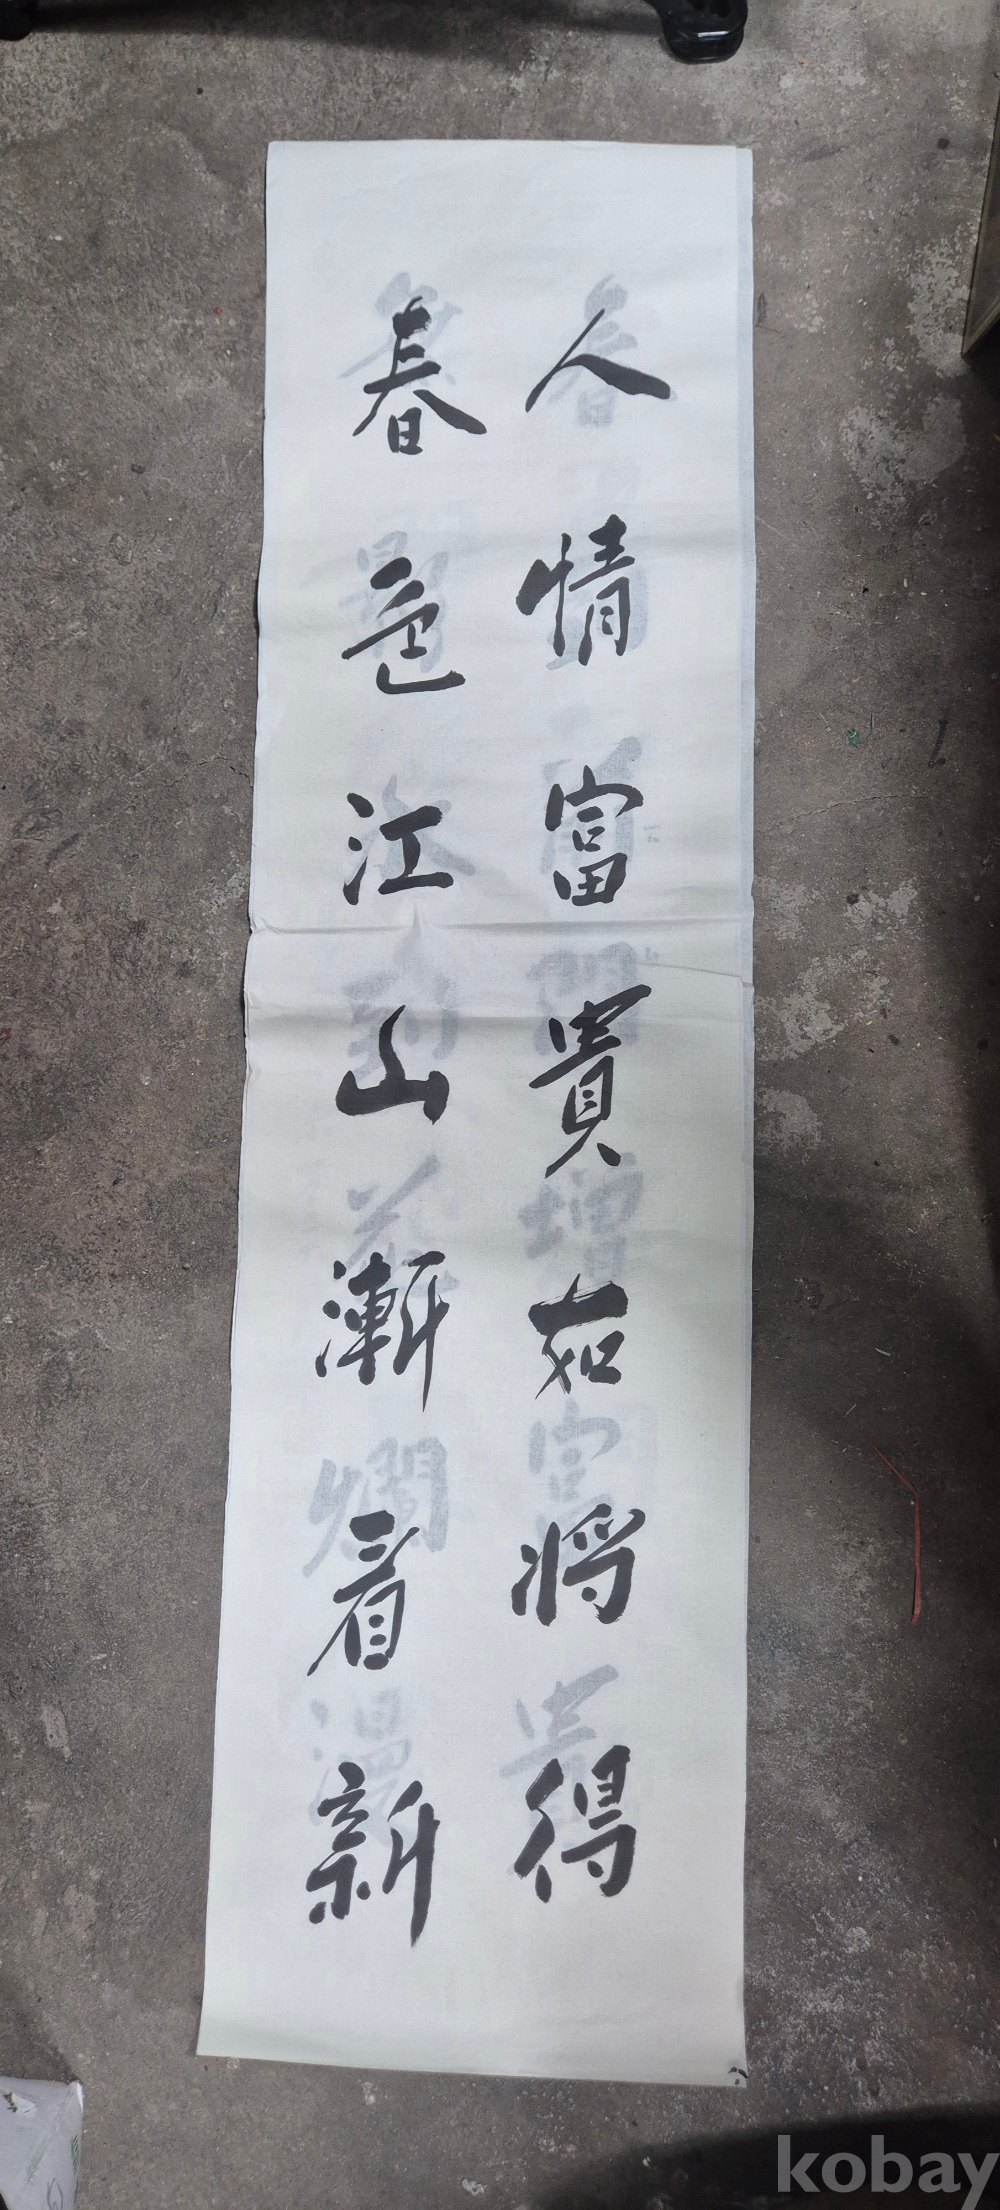 人情富貴如將得
春色江山漸看新
kobay